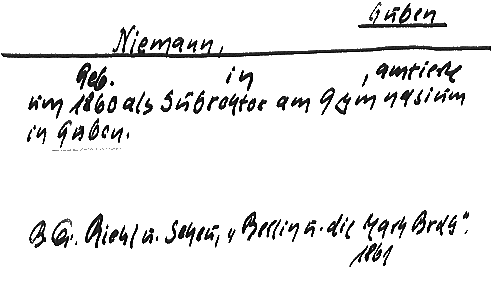 Guben
Niemann,
Geb. in , amtierte
um 1860 als Subrektor am Gymnasium
in Guben.
B G. Riehl u. Scheu, "Berlin u. die Mark Brdbg".
1861